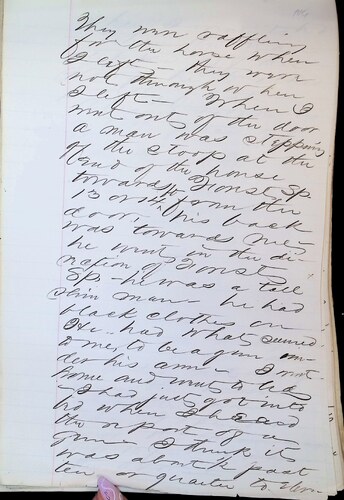 They were raffling
for the horse when
I left - They were
not through when
I left - When I
went out of the door
a man was stepping
of the stoop at the
end of the house
towards Front Sp
13 or 14 ft from the
door. his back
was towards me -
he went in the di-
rection of Front
Sp - he was a tall
slim man - he had
black clothes on
He had what seemed
to me, to be a gun un-
der his arm - I went
home and went to bed
- I had just got into
bd when I heard
the report of a
gun - I think it
was about past
ten or quarter to